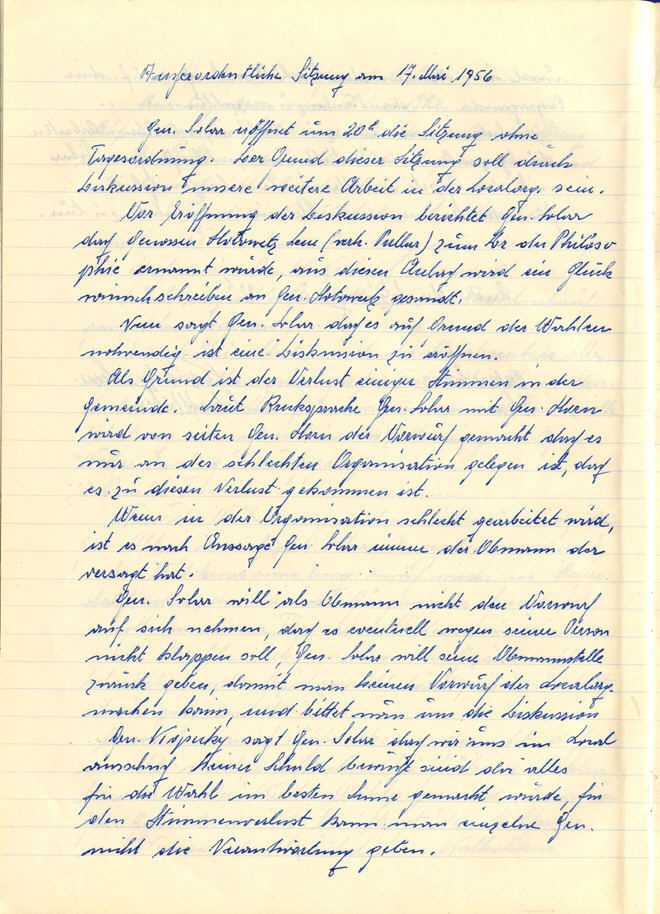 Ausserordentliche Sitzung am 17. Mai 1956
Gen. Solar eröffnet um 20h die Sitzung ohne
Tagesordnung. Der Grund dieser Sitzung soll durch
Diskussion unsere weitere Arbeit in der Localorg. sein.
Vor Eröffnung der Diskussion berichtet Gen. Solar
daß Genossen Hotowetz (verh. Pullar) zum Dr der Philoso
phie ernannt wurde, aus diesen Anlaß wird ein Glück
wunschschreiben an Gen. Hotowetz gesandt.
Nun sagt Gen. Solar daß es auf Grund der Wahlen
notwendig ist eine Diskussion zu eröffnen.
Als Grund ist der Verlust einiger Stimmen in der
Gemeinde. Laut Rücksprache Gen. Solar mit Gen. Horn
wird von seiten Gen. Horn der Vorwurf gemacht daß es
nur an der schlechten Organisation gelegen ist, daß
es zu diesen Verlust gekommen ist.
Wenn in der Organisation schlecht gearbeitet wird,
ist es nach Aussage Gen. Solar immer der Obmann der
versagt hat.
Gen. Solar will als Obmann nicht den Vorwurf
auf sich nehmen, daß es eventuell wegen seiner Person
nicht klappen soll, Gen. Solar will seine Obmannstelle
zurück geben, damit man keinen Vorwurf der Localorg.
machen kann, und bittet nun um die Diskussion
Gen. sagt Gen. Solar daß wir uns im Local
ausschuß keiner Schuld bewußt sind da alles
für die Wahl im besten Sinne gemacht wurde, für
den Stimmenverlust kann man einzelne Gen.
nicht die Verantwortung geben.